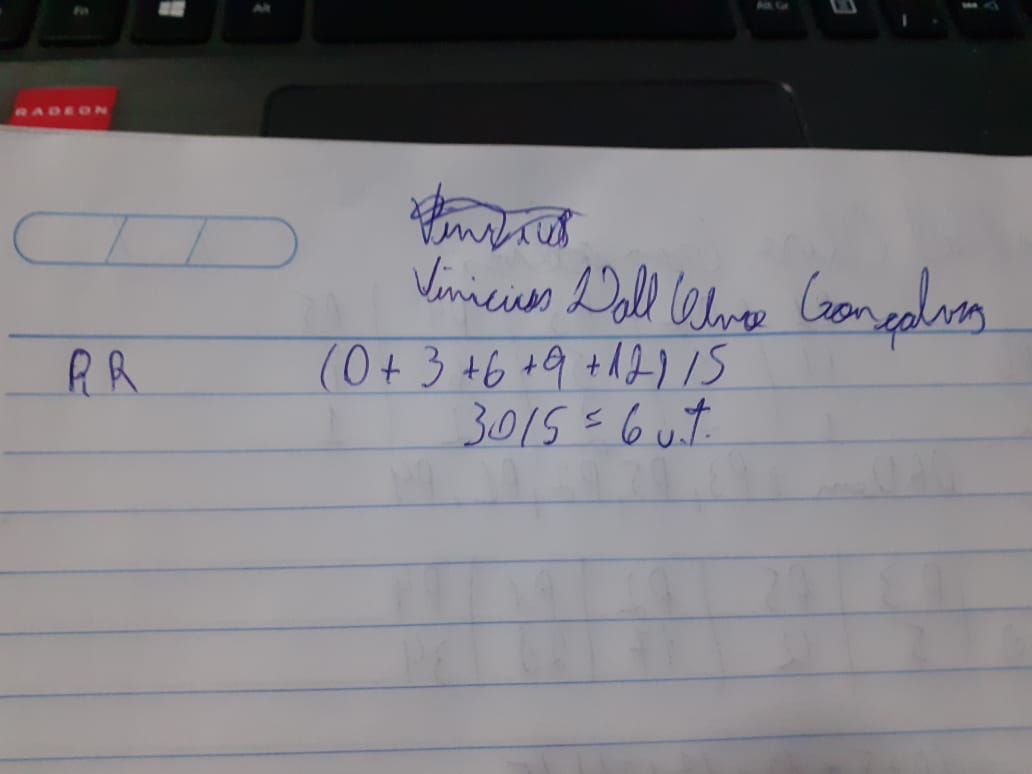 Fn
Alt
Alt Gr
RADEON
Vinicius
Vinicius Dall Gonçalves
RR (0 + 3 + 6 + 9 + 12) / 5
30 / 5 = 6 u.t.